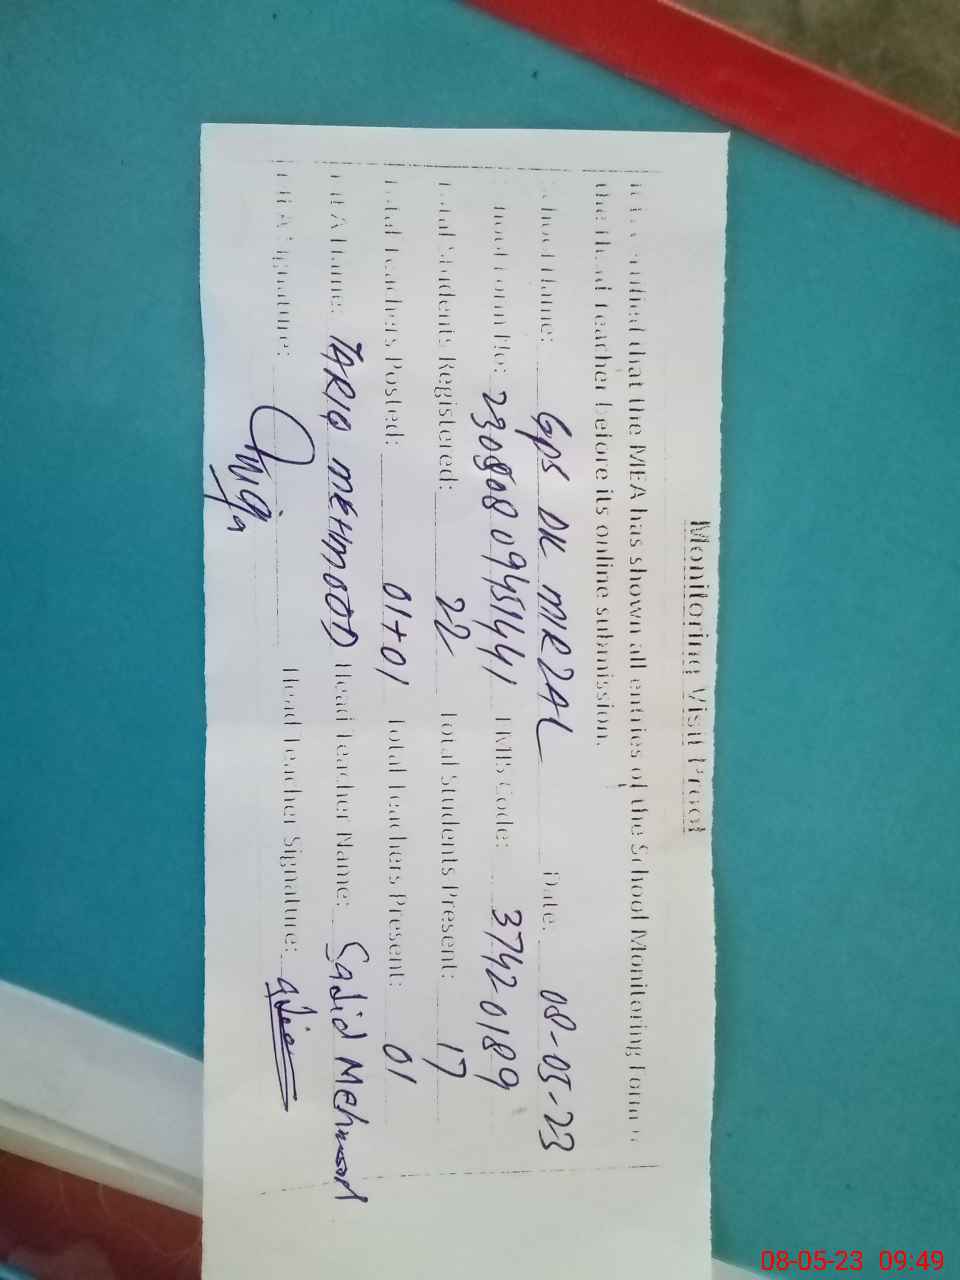 Monitoring Visit Proof
It is certified that the MEA has shown all entries of the School Monitoring Form to
the Head Teacher before its online submission.
School Name: GPS DK MIRZAL Date: 08-05-23
School Form No: EMIS Code: 37420189
Total Students Registered: 22 Total Students Present: 17
Total Teachers Posted: 01+01 Total Teachers Present: 01
MEA Name: TARIQ MEHMOOD Head Teacher Name: Sajid Mehmood
MEA Signature: Head Teacher Signature:
08-05-23 09:49